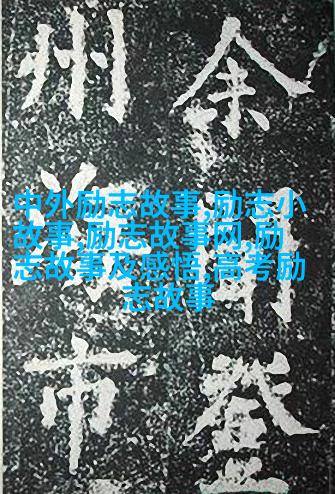 余登
州海市
中外励志故事,励志小
故事,励志故事网,励
志故事及感悟,高考励
志故事